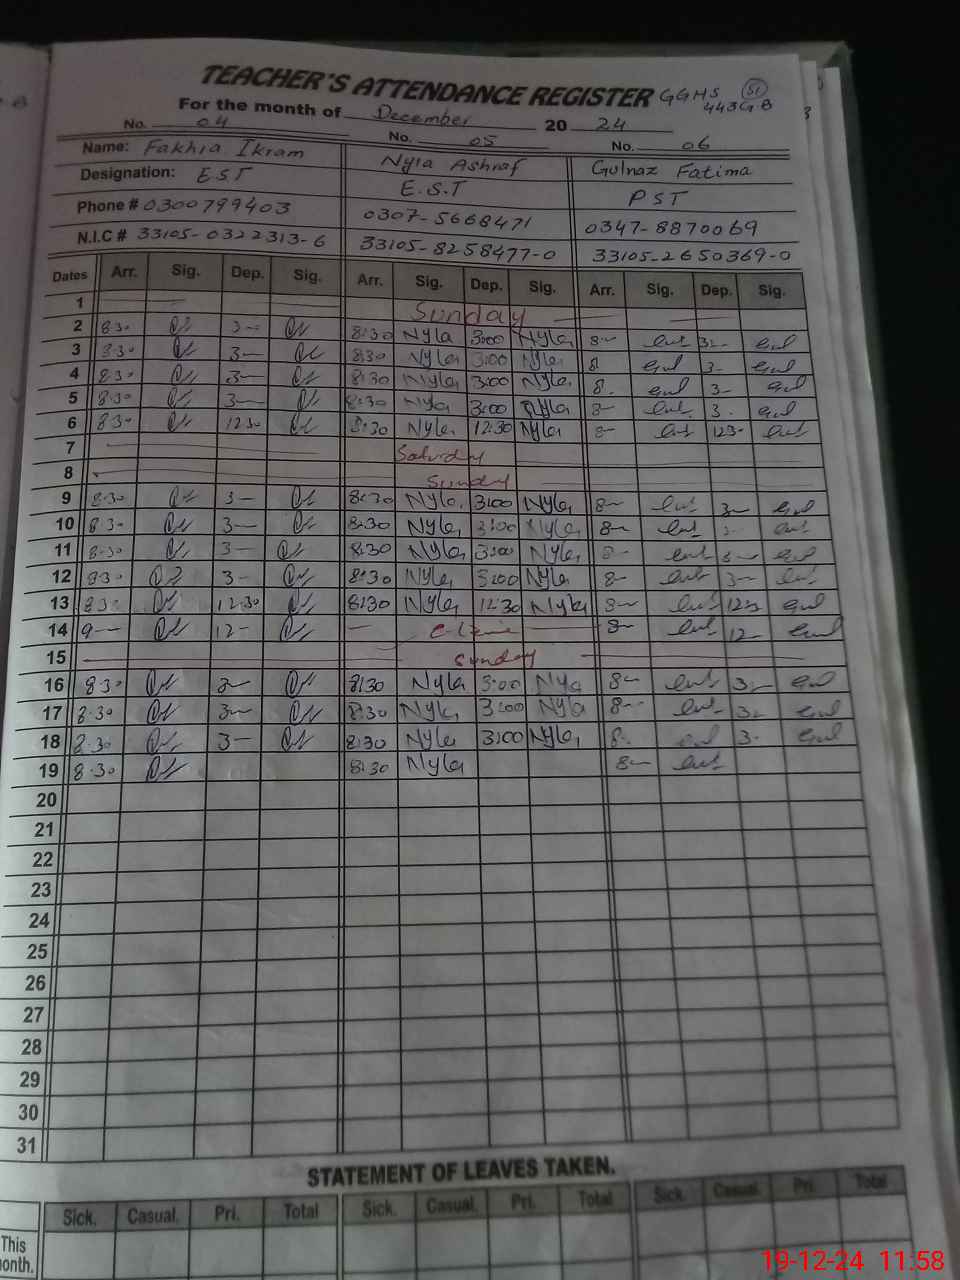 TEACHER'S ATTENDANCE REGISTER GGHS 51
443GB
For the month of December 20 24
No. 04 No. 05 No. 06
Name: Fakhra Ikram Nyla Ashraf Gulnaz Fatima
Designation: EST E.S.T PST
Phone # 0300799403 0307-5668471 0347-8870069
N.I.C # 33105-0322313-6 33105-8258477-0 33105-2650369-0
Dates Arr. Sig. Dep. Sig. Arr. Sig. Dep. Sig. Arr. Sig. Dep. Sig.
1 Sunday
2 8:30 3- 8:30 Nyla 3:00 Nyla 8- 3-
3 8:30 3- 8:30 Nyla 3:00 Nyla 8 gul 3- gul
4 8:30 3- 8:30 Nyla 3:00 Nyla 8. gul 3- gul
5 8:30 3- 8:30 Nyla 3:00 Nyla 8- 3. gul
6 8:30 1230 8:30 Nyla 12:30 Nyla 8- 1230
7 Saturday
8 Sunday
9 8:30 3- 8:30 Nyla 3:00 Nyla 8- 3- gul
10 8:30 3- 8:30 Nyla 3:00 Nyla 8-
11 8:30 3- 8:30 Nyla 3:00 Nyla 8- 3- gul
12 830 3- 8:30 Nyla 3:00 Nyla 8- 3-
13 830 12:30 8:30 Nyla 12:30 Nyla 8- 123 gul
14 9- 12- - - 8- 12- gul
15 Sunday
16 8:30 3- 8:30 Nyla 3:00 Nya 8- 3- gul
17 8:30 3- 8:30 Nyla 3:00 Nyla 8- 3- gul
18 8:30 3- 8:30 Nyla 3:00 Nyla 8. gul 3. gul
19 8:30 8:30 Nyla 8-
20
21
22
23
24
25
26
27
28
29
30
31
STATEMENT OF LEAVES TAKEN.
Sick. Casual. Pri. Total Sick. Casual. Pri. Total Sick. Casual. Pri. Total
This
month.
19-12-24 11:58